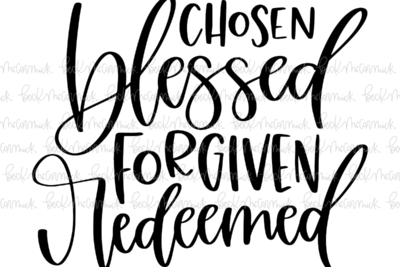 CHOSEN
blessed
FORGIVEN
Redeemed